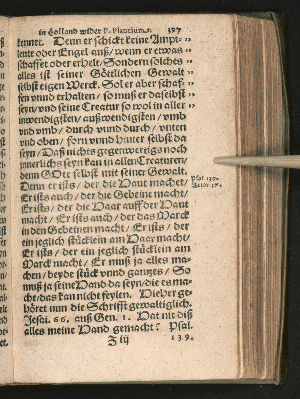 in Holland wider P. Plancium. 397
kennet. Denn er schickt keine Ampt-
leute oder Engel auß/ wenn er etwas
schaffet oder erhelt/ Sondern solches
alles ist seiner Göttlichen Gewalt
selbst eigen Werck. Sol er aber schaf-
fen vnnd erhalten/ so muß er daselbst
seyn/ vnd seine Creatur so wol in aller
inwendigsten/ außwendigsten/ vmb
vnd vmb/ durch vnnd durch/ vnten
vnd oben/ forn vnnd hinter selbst da
seyn/ Daß nichts gegenwertigs noch
innerlichs seyn kan in allen Creaturen/
denn GOtt selbst mit seiner Gewalt.
Denn er ists/ der die Haut machet/
Er ists auch/ der die Gebeine machet/
Er ists/ der die Haar auff der Haut
macht/ Er ists auch/ der das Marck
in den Gebeinen macht/ Er ists/ der
ein jeglich stücklein am Haar macht/
Er ists/ der ein jeglich stücklein am
Marck macht/ Er muß ja alles ma-
chen/ beyde stück vnnd gantzes/ So
muß ja seine Hand da seyn/ die es ma-
che/ das kan nicht feylen. Hieher ge-
höret nun die Schrifft gewaltiglich.
Jesai. 66. auß Gen. 1. Hat nit diß
alles meine Hand gemacht? Psal.
Z iij 139.
Psal. 139.
Actor. 17.